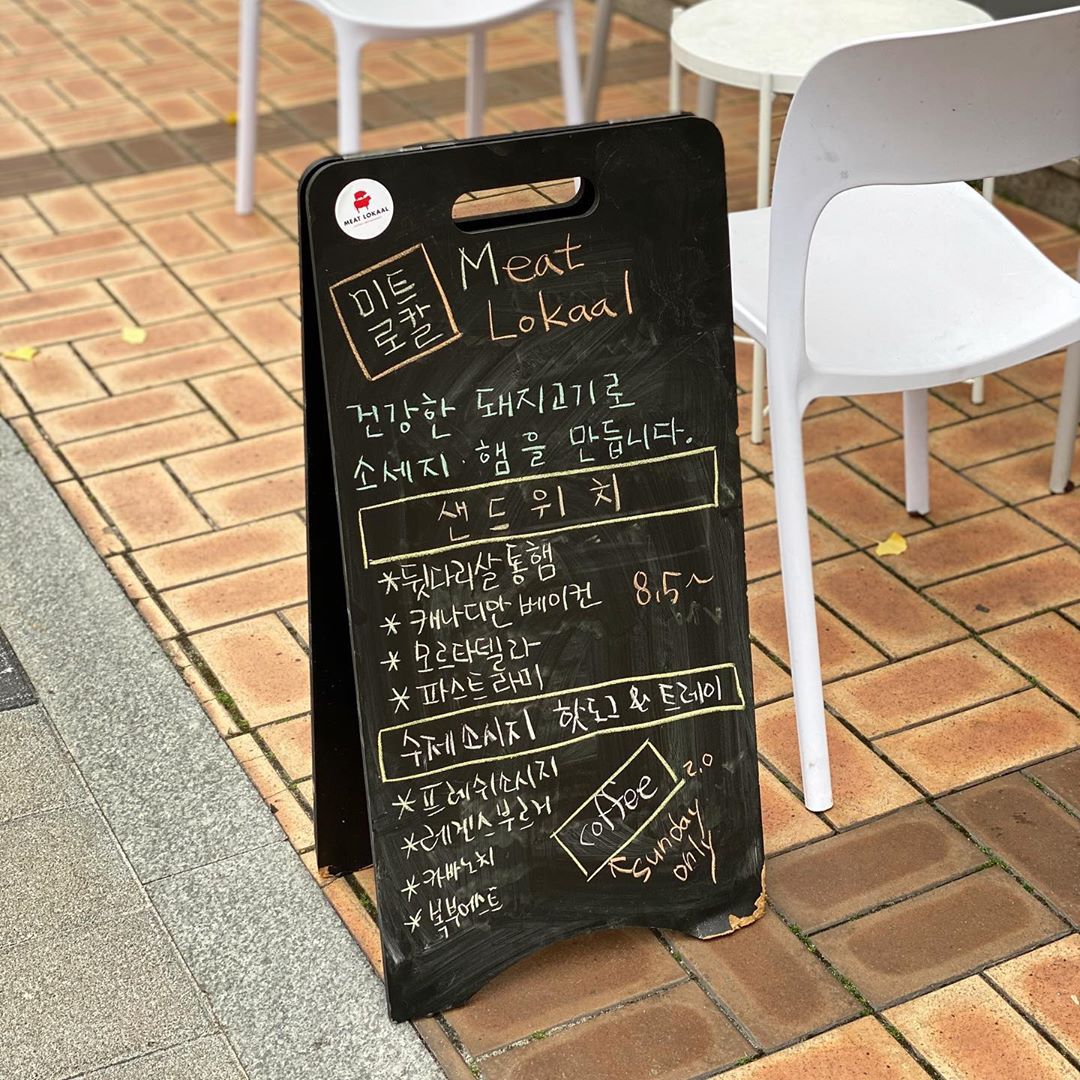 MEAT LOKAAL
미트
로칼
Meat
Lokaal
건강한 돼지고기로
소세지·햄을 만듭니다.
샌드위치
*뒷다리살통햄
*캐나디안베이컨 8.5~
*모르타델라
*파스트라미
수제소시지 핫도그&트레이
*프레쉬소시지
*레겐스부르거
*카바노치
*복부어스트
coffee 2.0
sunday
only